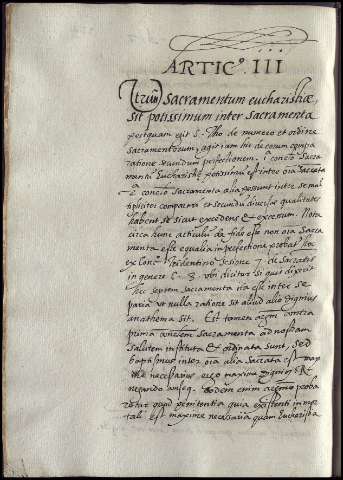 ARTICº. III
Utrum Sacramentum eucharistiæ,
sit potissimum inter sacramenta
postquam egit S. Tho de numero et ordine
sacramentorum, agit iam hic de eorum compa
ratione secundum perfectionem. 1ª conclo Sacra
mentum Eucharistiæ potissimum est inter oīa sacrāta
2ª conclo sacramenta alia possunt inter se mul
tipliciter comparari et secundum diversas qualitates
habent se sicut excedens et excessum. Nota
circa hunc articulum de fide est non oīa Sacra
menta esse equalia in perfectione probat
ex Conc. tridentino sesione 7 de Sacrātis
in genere C. 3. ubi dicitur si quis dixerit
hec septem sacramenta ita esse inter se
paria ut nulla ratione sit aliud alio dignius
anathema sit. Est tamen argm contra
primam conclem sacramenta ad nostram
salutem instituta et ordinata sunt, sed
baptismus inter oīa alia sacrāta est
necessarius ergo maxime dignius R.
negando anseq. eodem enim argmo proba
retur quod penitentia quia existenti in mor
tali est maxime necessaria quam Eucharistia